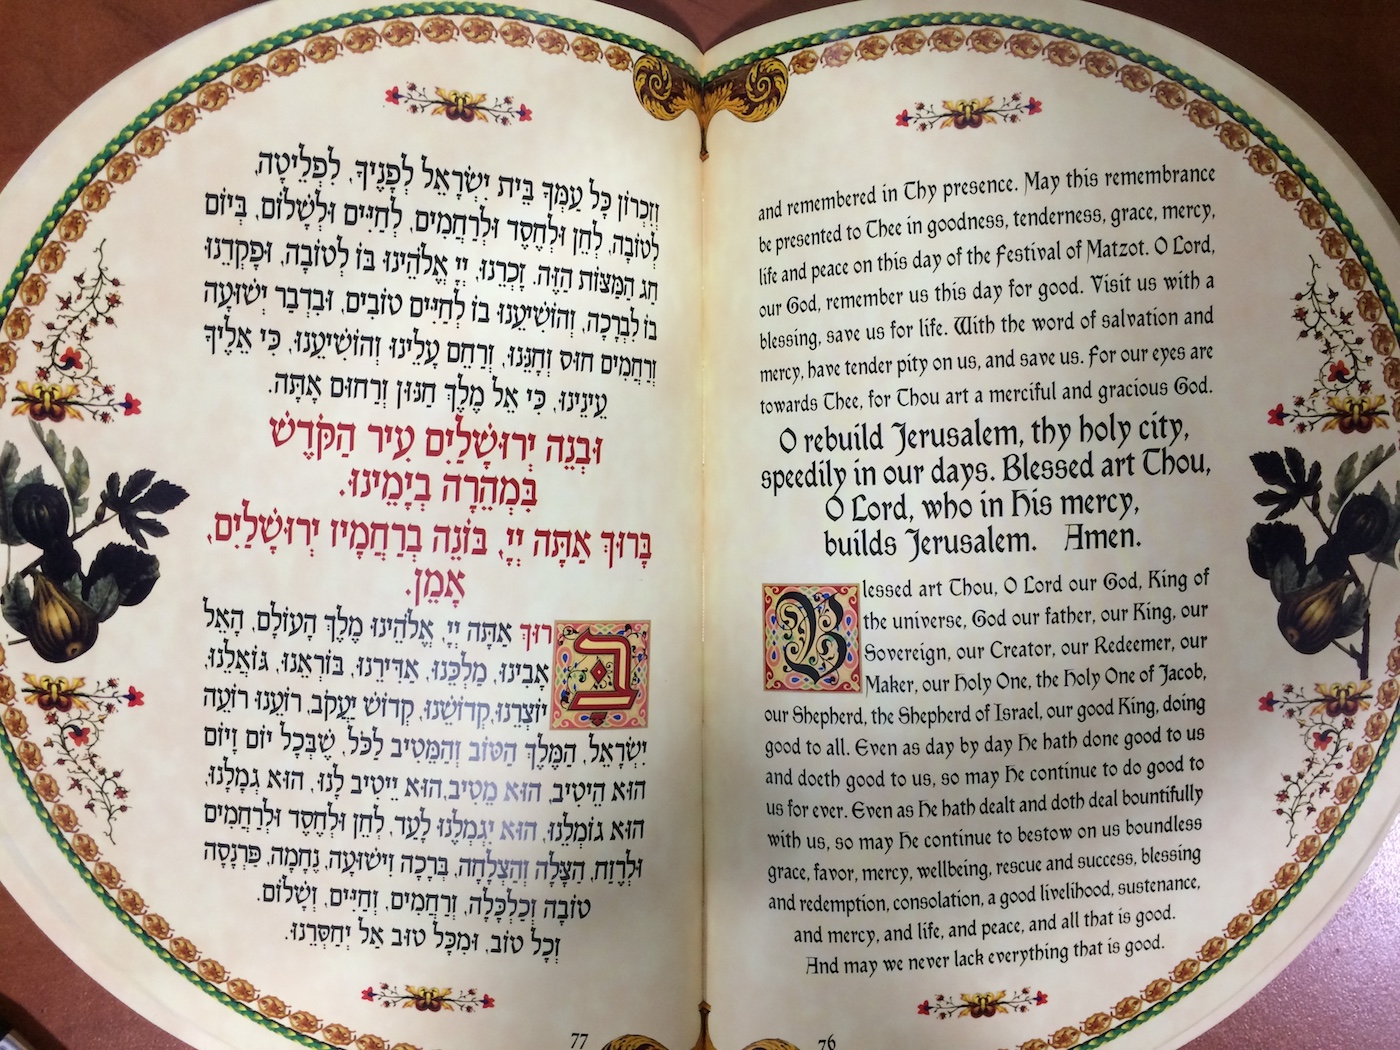 and remembered in Thy presence. May this remembrance
be presented to Thee in goodness, tenderness, grace, mercy,
life and peace on this day of the Festival of Matzot. O Lord,
our God, remember us this day for good. Visit us with a
blessing, save us for life. With the word of salvation and
mercy, have tender pity on us, and save us. For our eyes are
towards Thee, for Thou art a merciful and gracious God.
O rebuild Jerusalem, thy holy city,
speedily in our days. Blessed art Thou,
O Lord, who in His mercy,
builds Jerusalem. Amen.
Blessed art Thou, O Lord our God, King of
the universe, God our father, our King, our
Sovereign, our Creator, our Redeemer, our
Maker, our Holy One, the Holy One of Jacob,
our Shepherd, the Shepherd of Israel, our good King, doing
good to all. Even as day by day He hath done good to us
and doeth good to us, so may He continue to do good to
us for ever. Even as He hath dealt and doth deal bountifully
with us, so may He continue to bestow on us boundless
grace, favor, mercy, wellbeing, rescue and success, blessing
and redemption, consolation, a good livelihood, sustenance,
and mercy, and life, and peace, and all that is good.
And may we never lack everything that is good.
76
וְזִכְרוֹן כָּל עַמְּךָ בֵּית יִשְׂרָאֵל לְפָנֶיךָ, לִפְלֵיטָה,
לְטוֹבָה, לְחֵן וּלְחֶסֶד וּלְרַחֲמִים, לְחַיִּים וּלְשָׁלוֹם, בְּיוֹם
חַג הַמַּצּוֹת הַזֶּה. זָכְרֵנוּ, יְיָ אֱלֹהֵינוּ בּוֹ לְטוֹבָה, וּפָקְדֵנוּ
בוֹ לִבְרָכָה, וְהוֹשִׁיעֵנוּ בוֹ לְחַיִּים טוֹבִים, וּבִדְבַר יְשׁוּעָה
וְרַחֲמִים חוּס וְחָנֵּנוּ, וְרַחֵם עָלֵינוּ וְהוֹשִׁיעֵנוּ, כִּי אֵלֶיךָ
עֵינֵינוּ, כִּי אֵל מֶלֶךְ חַנּוּן וְרַחוּם אָתָּה.
וּבְנֵה יְרוּשָׁלַיִם עִיר הַקֹּדֶשׁ
בִּמְהֵרָה בְיָמֵינוּ.
בָּרוּךְ אַתָּה יְיָ, בּוֹנֵה בְרַחֲמָיו יְרוּשָׁלָיִם,
אָמֵן.
בָּרוּךְ אַתָּה יְיָ, אֱלֹהֵינוּ מֶלֶךְ הָעוֹלָם, הָאֵל
אָבִינוּ, מַלְכֵּנוּ, אַדִּירֵנוּ, בּוֹרְאֵנוּ, גּוֹאֲלֵנוּ,
יוֹצְרֵנוּ, קְדוֹשֵׁנוּ, קְדוֹשׁ יַעֲקֹב, רוֹעֵנוּ רוֹעֵה
יִשְׂרָאֵל, הַמֶּלֶךְ הַטּוֹב וְהַמֵּטִיב לַכֹּל, שֶׁבְּכָל יוֹם וָיוֹם
הוּא הֵיטִיב, הוּא מֵטִיב, הוּא יֵיטִיב לָנוּ, הוּא גְמָלָנוּ,
הוּא גוֹמְלֵנוּ, הוּא יִגְמְלֵנוּ לָעַד, לְחֵן וּלְחֶסֶד וּלְרַחֲמִים
וּלְרֶוַח, הַצָּלָה וְהַצְלָחָה, בְּרָכָה וִישׁוּעָה, נֶחָמָה, פַּרְנָסָה
טוֹבָה וְכַלְכָּלָה, וְרַחֲמִים, וְחַיִּים, וְשָׁלוֹם,
וְכָל טוֹב, וּמִכָּל טוּב אַל יְחַסְּרֵנוּ.
77